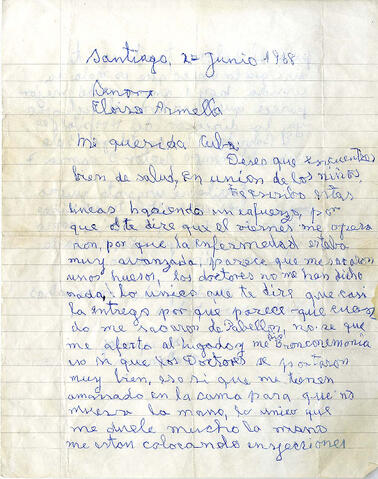 Santiago, 2 Junio 1968
Eloisa Armella
Mi querida
Deseo que encuentres
bien de salud, en unión de los niños.
Te escribo estas
lineas haciendo un esfuerzo, por
que te dire que el viernes me opera
ron, por que la enfermedad estaba
muy avanzada, parece que me sacaron
unos huesos, los doctores no me han dicho
nada, lo unico que te dire que casi
la entrego por que parece que cuan
do me sacaron de Pabellon, no se que
me afecto al higado y me dio Bronconeumonia
eso si que los Doctores se portaron
muy bien, eso si que me tienen
amarrado en la cama para que no
mueva la mano, lo unico que
me duele mucho la mano
me estan colocando inyecciones